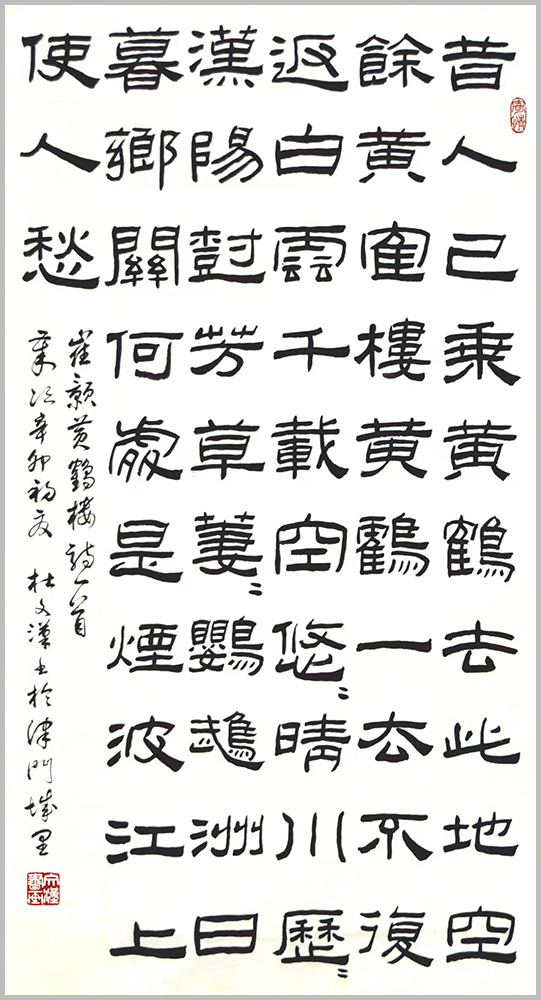 昔人已乘黄鶴去此地空
餘黄寉樓黄鸖一去不復
返白雲千載空悠〻晴川歷〻
漢陽尌芳草萋〻鸚鵡洲日
暮鄉關何處是煙波江上
使人愁
崔颢黄鶴楼詩一首
歲次辛卯初夏 杜文漢書於津門城里